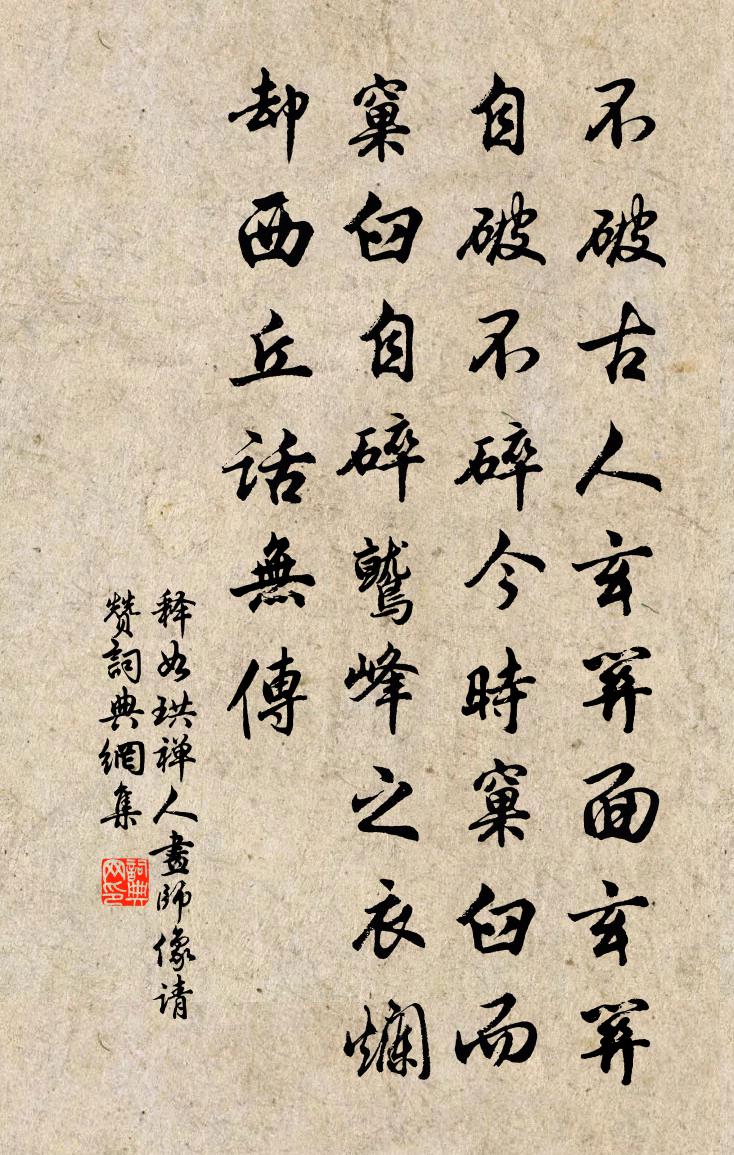 不破古人玄關面玄關
自破不碎今時窠臼而
窠臼自碎鷲峰之衣爛
却西丘話無傳
释如珙禅人畫師像请
赞詞典網集
詞典
网印